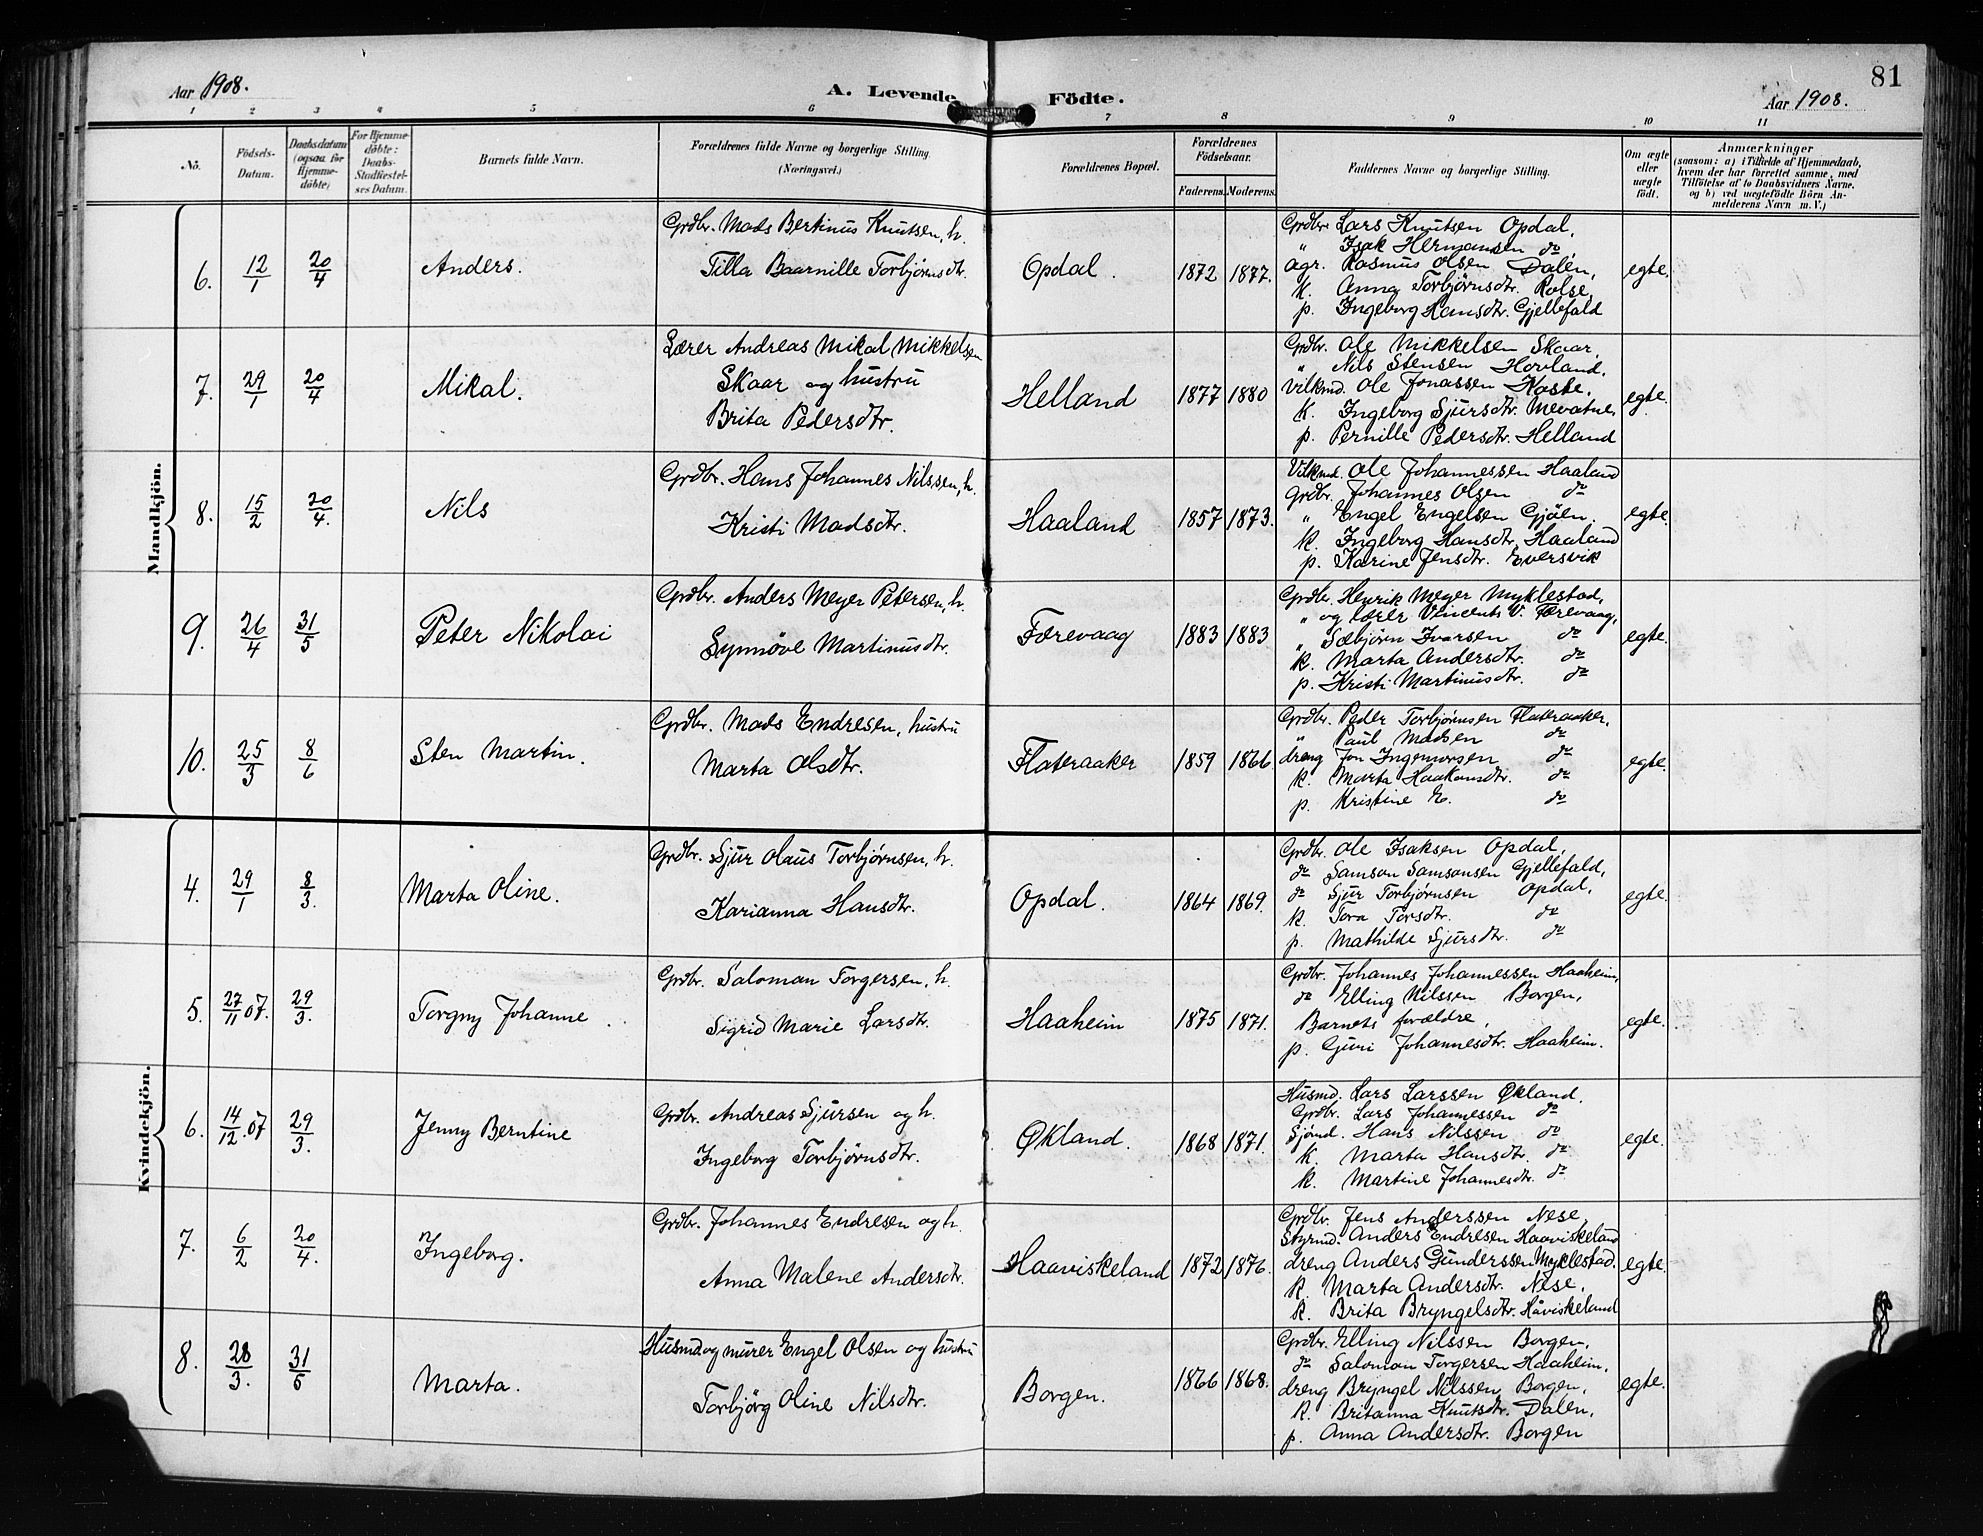 81
Aar 1908.
A. Levende Födte.
Aar 1908.
1 2 3 4 5 6 7 8 9 10 11
Nö.
Födsels-Datum.
Daabsdatum (ogsaa for Hjemmedöbte)
For Hjemmedöbte: Daabs-Stadfæstelses Datum.
Barnets fulde Navn.
Forældrenes fulde Navne og borgerlige Stilling (Næringsvei.)
Forældrenes Bopæl.
Forældrenes Födselsaar.
Faderens. Moderens.
Faddernes Navne og borgerlige Stilling.
Om ægte eller uægte födt.
Anmærkninger
(saasom: a) i Tilfælde af Hjemmedaab,
hvem der har forrettet samme, med
Tilföielse af to Daabsvidners Navne.
og b) ved uægtefödte Börn An-
melderens Navn m. V.)
Mandkjön.
6. 12/1 20/4 Anders.
Grdbr. Mads Bertinus Knutsen, h.
Tilla Baarnille Torbjørnsdtr.
Opdal. 1872 1877.
Grdbr. Lars Knutsen Opdal,
" Isak Hermansen do
agr. Rasmus Olsen Dalen,
k. Anna Torbjørnsdtr. Rolse,
p. Ingeborg Hansdtr. Gjellefald
egte.
7. 29/1 20/4 Mikal.
Lærer Andreas Mikal Mikkelsen
Skaar og hustru
Brita Pedersdtr.
Helland 1877 1880
Grdbr. Ole Mikkelsen Skaar,
" Nils Stensen Hovland,
Vilkmd. Ole Jonassen Koste,
K. Ingeborg Sjursdtr. Mevatne,
p. Pernille Pedersdtr. Helland
egte.
8. 15/2 20/4. Nils
Grdbr. Hans Johannes Nilssen, h.
Kristi Madsdtr.
Haaland 1857 1873.
Vilkmd. Ole Johannessen Haaland
Grdbr. Johannes Olsen do
" Engel Engelsen Gjøen.
k. Ingeborg Hansdtr. Haaland
p. Karine Jensdtr. Eversvik
egte.
9. 26/4 31/5 Peter Nikolai
Grdbr. Anders Meyer Petersen, h.
Synnøve Martinusdtr.
Færevaag 1883 1883
Grdbr. Henrik Meyer Myklestad,
" og lærer Vincents V. Færevaag,
" Sæbjørn Ivarsen do
k. Marta Andersdtr. do
p. Kristi Martinusdtr. do
egte.
10. 25/3 8/6 Sten Martin.
Grdbr. Mads Endresen, hustru
Marta Olsdtr.
Flateraaker 1859 1866.
Grdbr. Peder Torbjørnsen Flateraaker,
" Paul Madsen do
dreng Jon Ingemorsen do
k. Marta Haakonsdtr. do
p. Kristine E. do
egte.
Kvindekjön.
4. 29/1 8/3. Marta Oline.
Grdbr. Sjur Olaus Torbjørnsen, h.
Karianna Hansdtr.
Opdal. 1864 1869.
Grdbr. Ole Isaksen Opdal,
do Samson Samsonsen Gjellefald,
do Sjur Torbjørnsen Opdal,
k. Tora Torsdtr. do
p. Mathilde Sjursdtr. do
egte.
5. 27/11 07. 29/3. Torgny Johanne.
Grdbr. Saloman Torgersen, h.
Sigrid Marie Larsdtr.
Haaheim 1875 1871.
Grdbr. Johannes Johannessen Haaheim,
do Elling Nilssen Borgen,
Barnets forældre,
p. Guri Johannesdtr. Haaheim.
egte.
6. 14/12.07 29/3. Jenny Berntine
Grdbr. Andreas Sjursen og h.
Ingeborg Torbjørnsdtr.
Økland. 1868 1871.
Husmd. Lars Larssen Økland.
Grdbr. Lars Johannessen do
Sjömd. Hans Nilssen do
K. Marta Hansdtr. do
k. Martine Johannesdtr. do
egte.
7. 6/2 20/4. Ingeborg.
Grdbr. Johannes Endresen og h.
Anna Malene Andersdtr.
Haaviskeland 1872 1876.
Grdbr. Jens Anderssen Nese,
Styrmd. Anders Endresen Haaviskeland
dreng Anders Gunderssen Myklestad.
k. Marta Andersdtr. Nese,
k. Brita Bryngelsdtr. Håviskeland
egte.
8. 28/3. 31/5 Marta.
Husmd og murer Engel Olsen og hustru
Torbjörg Oline Nilsdtr.
Borgen. 1866 1868.
Grdbr. Elling Nilssen Borgen,
do Saloman Torgersen Haaheim,
dreng Bryngel Nilssen Borgen,
k. Britanna Knutsdtr. Dalen,
p. Anna Andersdtr. Borgen
egte.